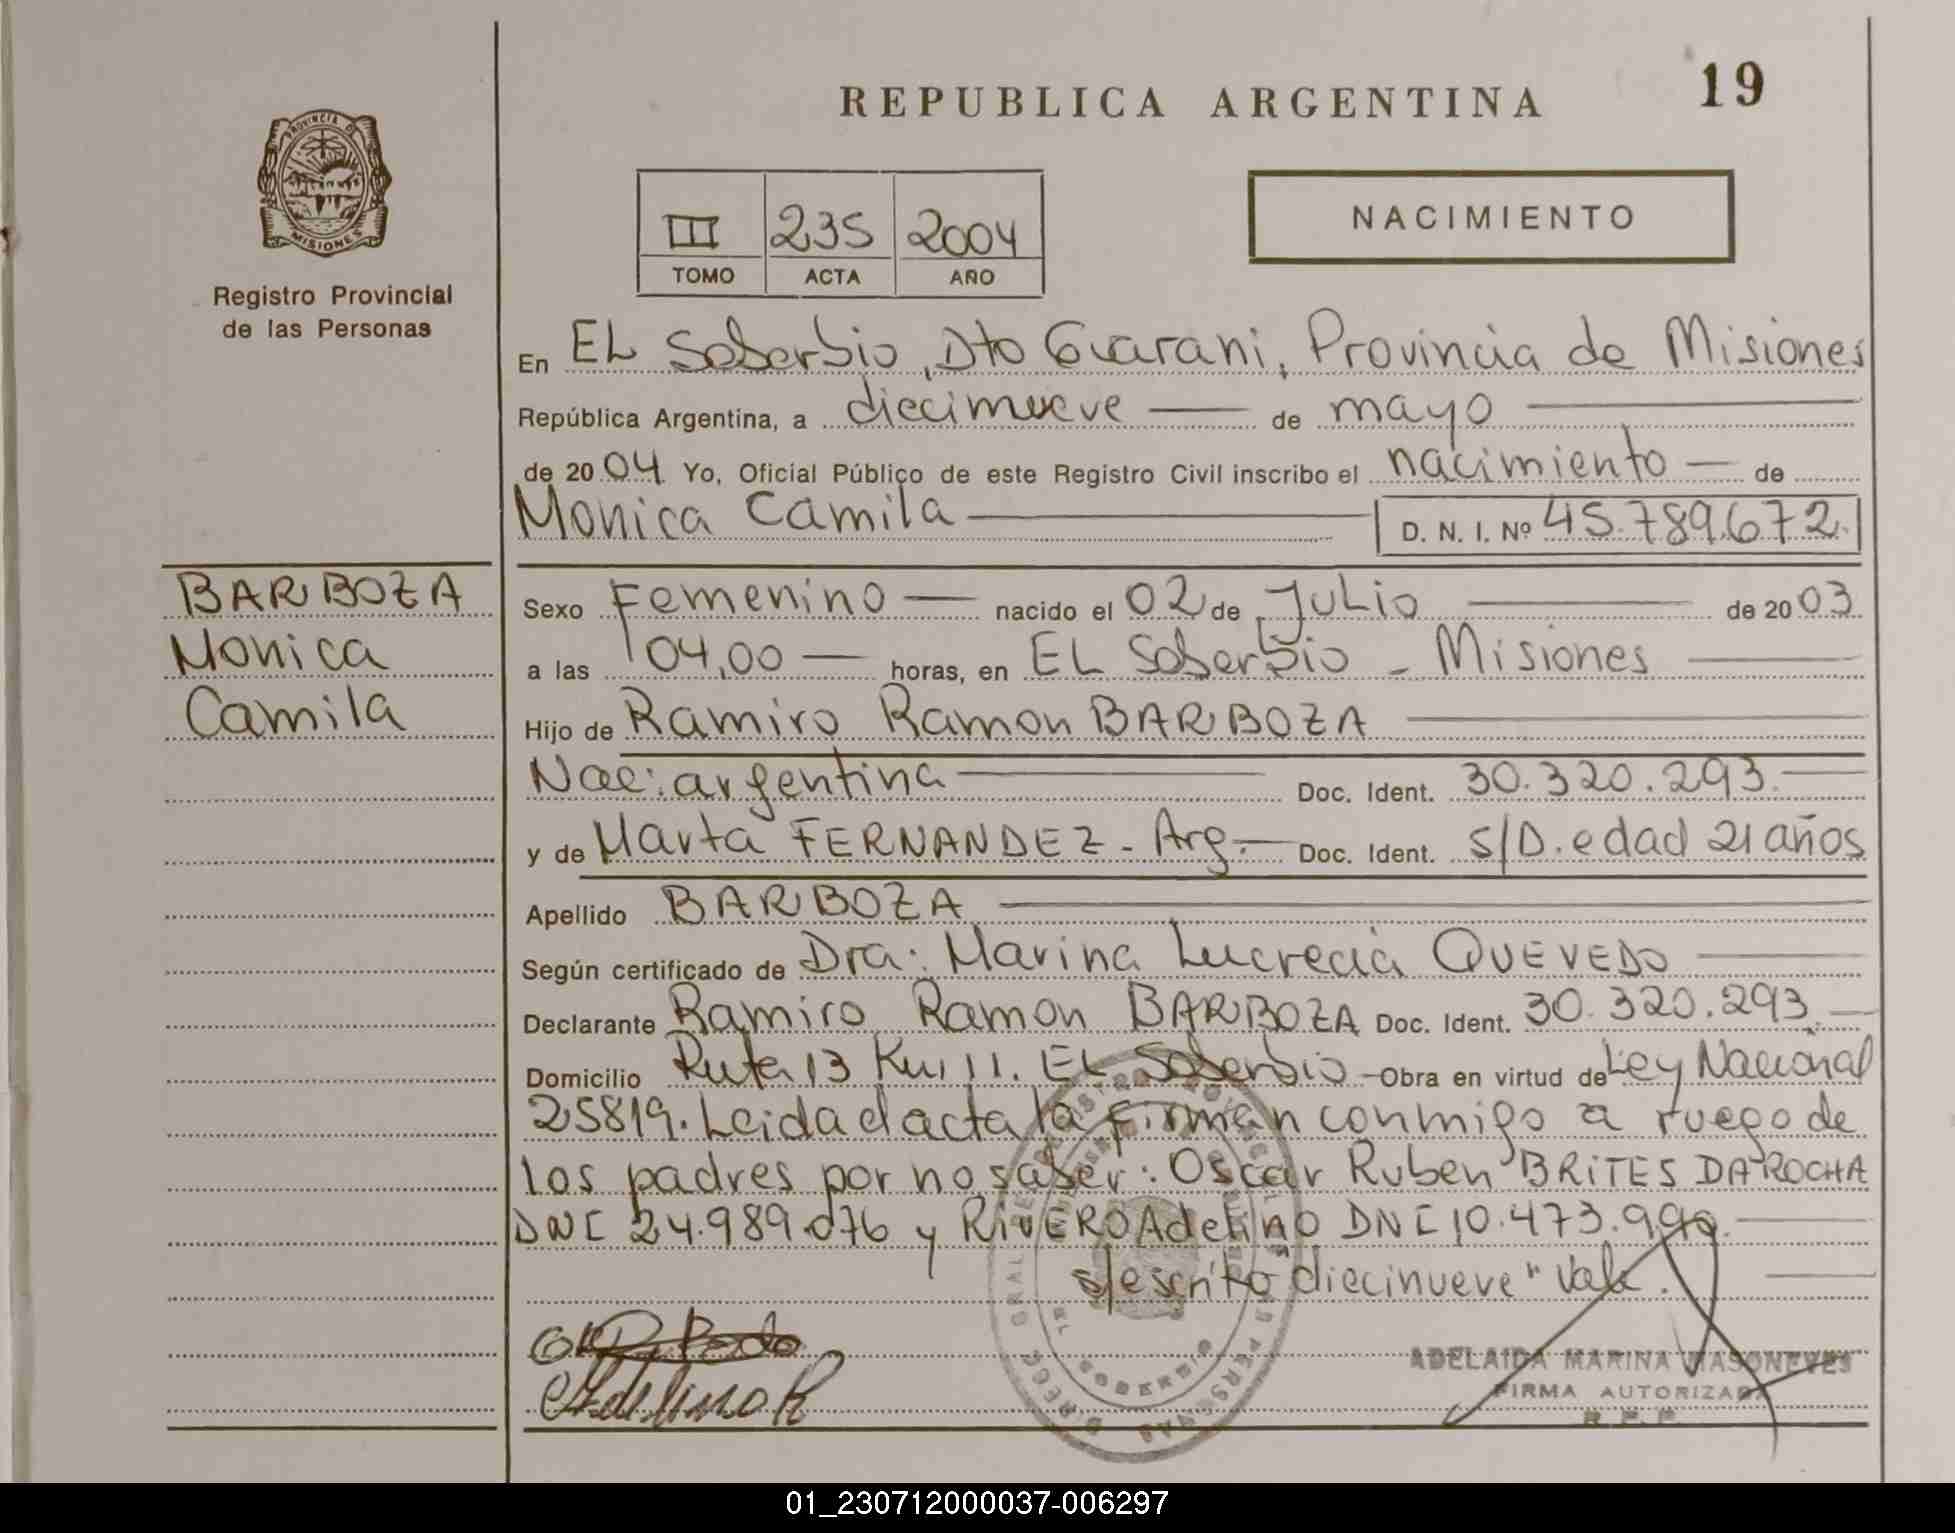 REPUBLICA ARGENTINA
19
PROVINCIA DE
MISIONES
Registro Provincial
de las Personas
III 235 2004
TOMO ACTA AÑO
NACIMIENTO
En EL Soberbio, Dto Guarani, Provincia de Misiones
República Argentina, a diecinueve — de mayo
de 2004 Yo, Oficial Público de este Registro Civil inscribo el nacimiento — de
Monica Camila — D. N. I. Nº 45.789.672.
BARBOZA
Monica
Camila
Sexo Femenino — nacido el 02 de Julio — de 2003
a las 04,00 — horas, en EL Soberbio - Misiones
Hijo de Ramiro Ramon BARBOZA
Nac: argentina — Doc. Ident. 30.320.293.—
y de Marta FERNANDEZ - Arg.— Doc. Ident. S/D. edad 21 años
Apellido BARBOZA
Según certificado de Dra: Marina Lucrecia QUEVEDO
Declarante Ramiro Ramon BARBOZA Doc. Ident. 30.320.293.—
Domicilio Ruta 13 Km 11. EL Soberbio - Obra en virtud de Ley Nacional
25819. Leida el acta la firman conmigo a ruego de
los padres por no saber: Oscar Ruben BRITES DA ROCHA
DNI 24.989.076 y RIVERO Adelino DNI 10.473.990.—
s/escrito "diecinueve" Vale.
Adelino R
ADELAIDA MARINA MASONEVES
FIRMA AUTORIZADA
R. P. P.
EL SOBERBIO
01_230712000037-006297